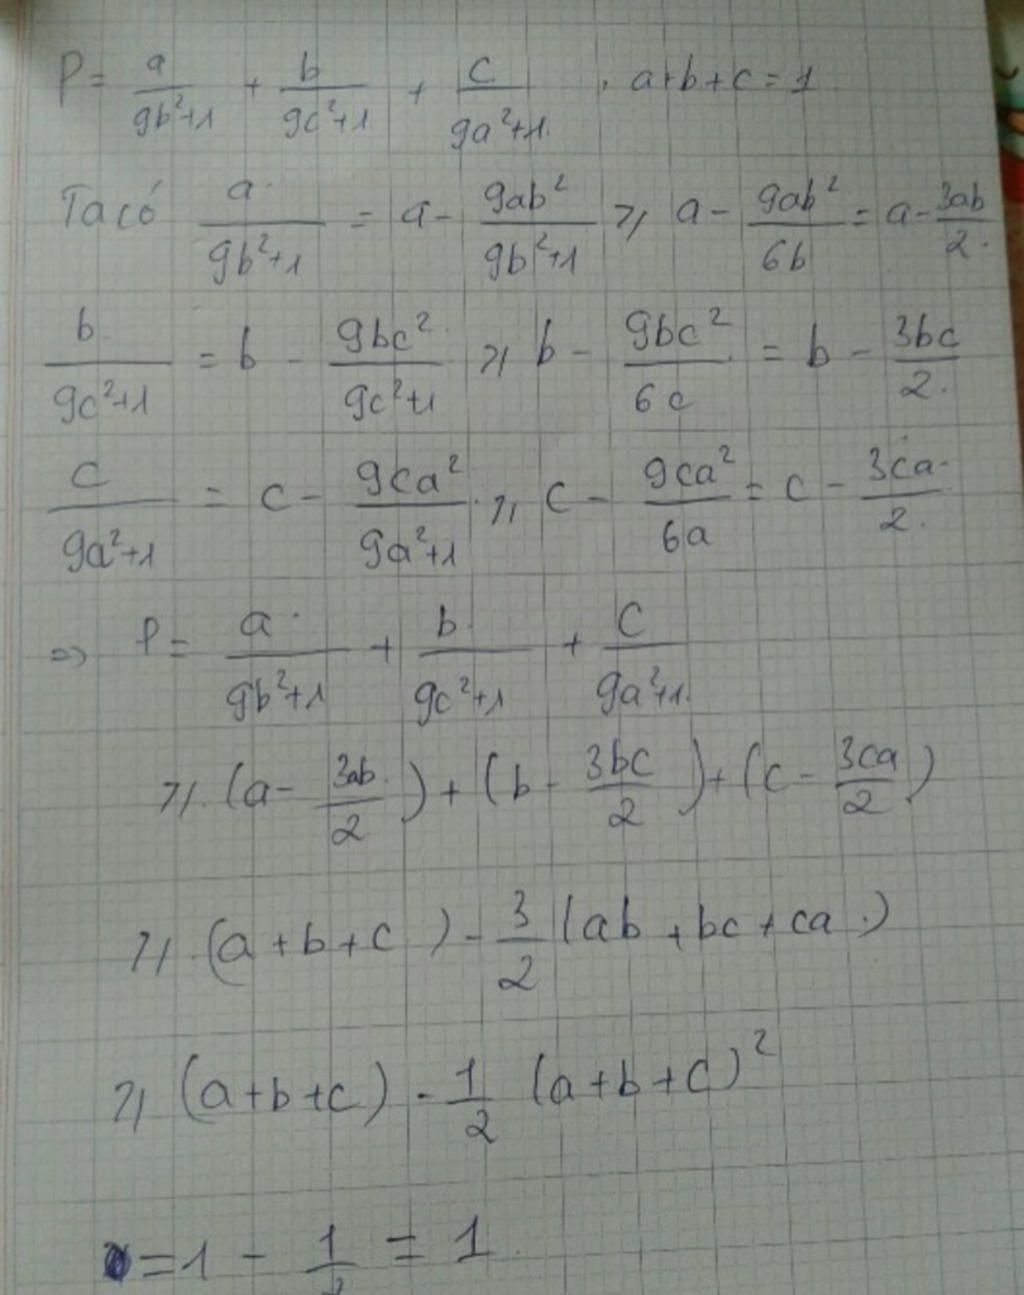 P = a/(9b²+1) + b/(9c²+1) + c/(9a²+1) . a+b+c = 1
Ta có a/(9b²+1) = a - 9ab²/(9b²+1) ≥ a - 9ab²/6b = a - 3ab/2.
b/(9c²+1) = b - 9bc²/(9c²+1) ≥ b - 9bc²/6c = b - 3bc/2.
c/(9a²+1) = c - 9ca²/(9a²+1) ≥ c - 9ca²/6a = c - 3ca/2.
=> P = a/(9b²+1) + b/(9c²+1) + c/(9a²+1)
≥ (a - 3ab/2) + (b - 3bc/2) + (c - 3ca/2)
≥ (a+b+c) - 3/2 (ab+bc+ca)
≥ (a+b+c) - 1/2 (a+b+c)²
= 1 - 1/2 = 1